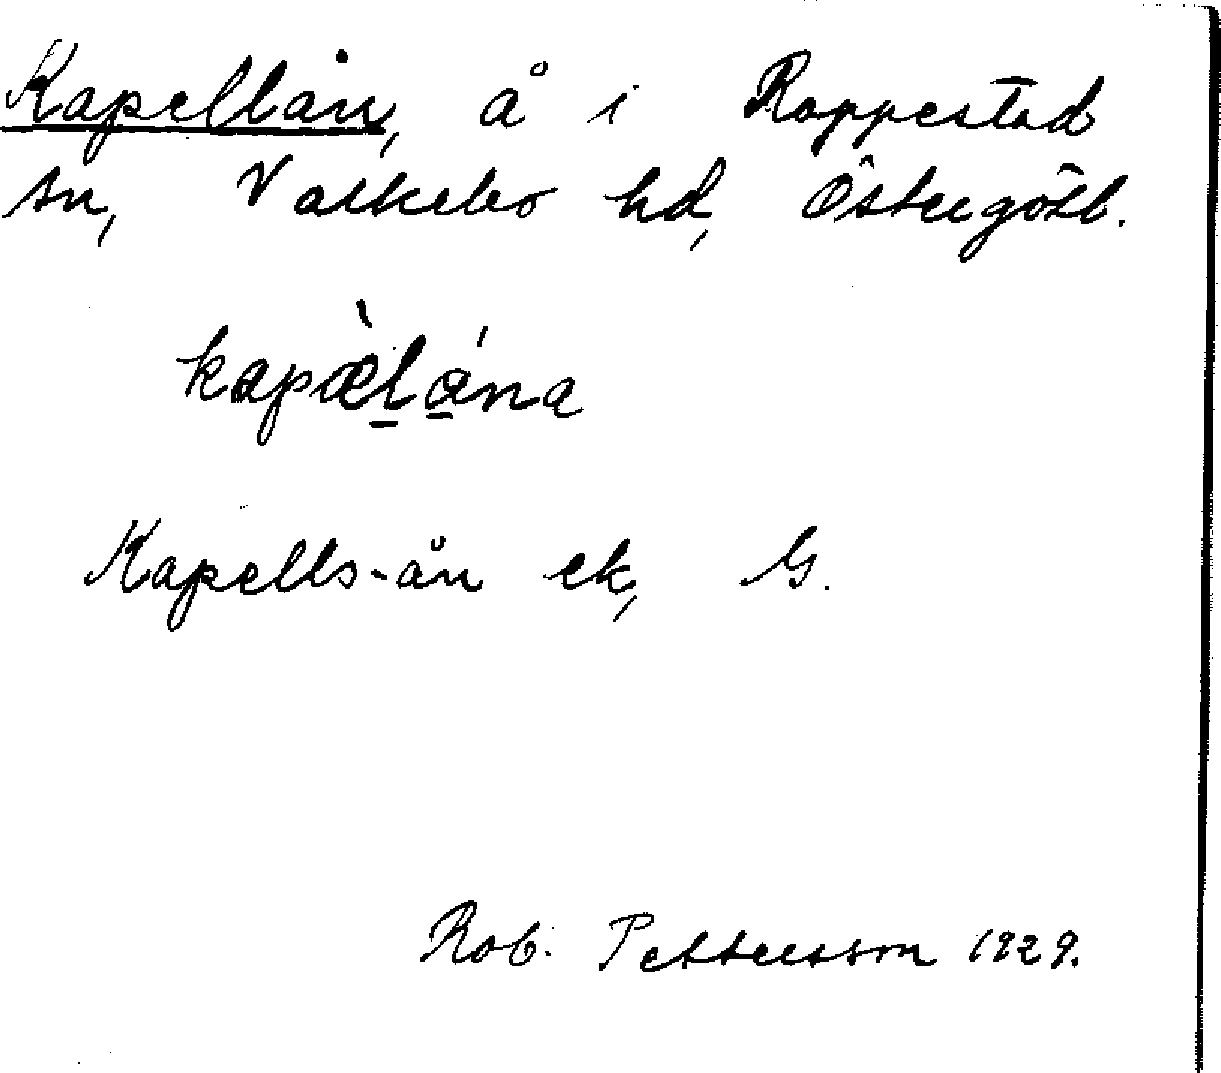 Kapellån, å i Rappestad
sn, Valkebo hd, Östergötl.
kapæ̀lǻna
Kapells-ån ek, G.
Rob. Pettersson 1929.